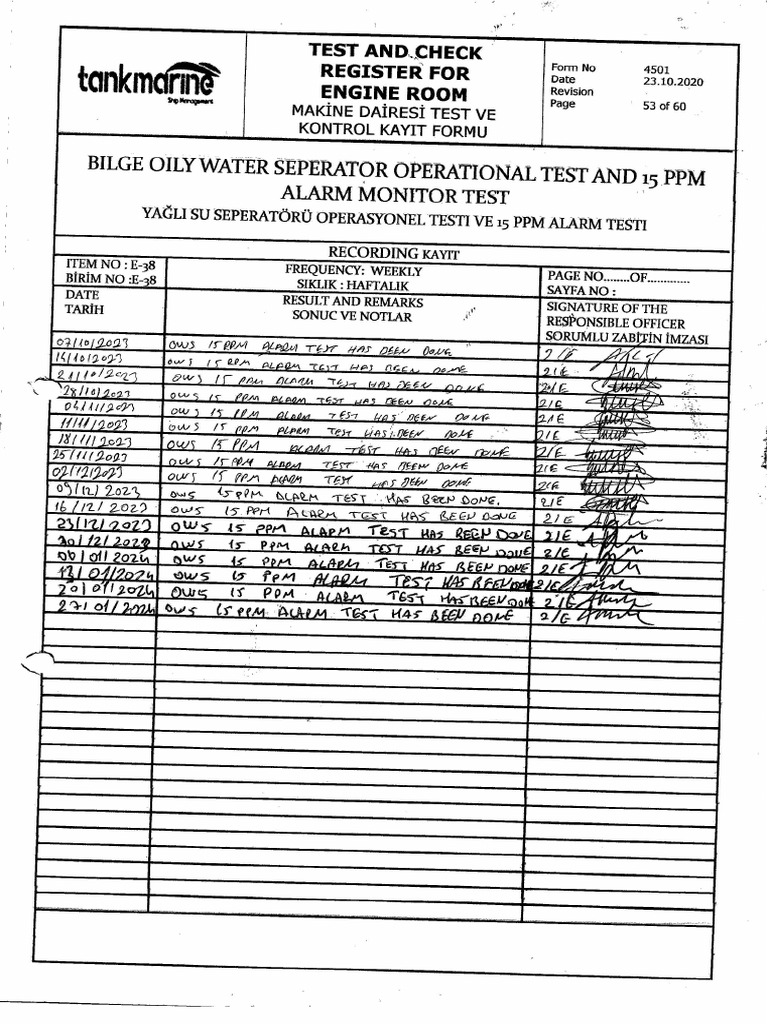 tankmarine
Ship Management
TEST AND CHECK
REGISTER FOR
ENGINE ROOM
MAKİNE DAİRESİ TEST VE
KONTROL KAYIT FORMU
Form No 4501
Date 23.10.2020
Revision
Page 53 of 60
BILGE OILY WATER SEPERATOR OPERATIONAL TEST AND 15 PPM
ALARM MONITOR TEST
YAĞLI SU SEPERATÖRÜ OPERASYONEL TESTI VE 15 PPM ALARM TESTI
RECORDING KAYIT
ITEM NO : E-38
BİRİM NO :E-38
FREQUENCY: WEEKLY
SIKLIK : HAFTALIK
PAGE NO........OF.............
SAYFA NO :
DATE
TARİH
RESULT AND REMARKS
SONUC VE NOTLAR
SIGNATURE OF THE
RESPONSIBLE OFFICER
SORUMLU ZABİTİN İMZASI
07/10/2023 OWS 15 PPM ALARM TEST HAS BEEN DONE 2/E
14/10/2023 OWS 15 PPM ALARM TEST HAS BEEN DONE 2/E
21/10/2023 OWS 15 PPM ALARM TEST HAS BEEN DONE 2/E
28/10/2023 OWS 15 PPM ALARM TEST HAS BEEN DONE 2/E
04/11/2023 OWS 15 PPM ALARM TEST HAS BEEN DONE 2/E
11/11/2023 OWS 15 PPM ALARM TEST HAS BEEN DONE 2/E
18/11/2023 OWS 15 PPM ALARM TEST HAS BEEN DONE 2/E
25/11/2023 OWS 15 PPM ALARM TEST HAS BEEN DONE 2/E
02/12/2023 OWS 15 PPM ALARM TEST HAS BEEN DONE 2/E
09/12/2023 OWS 15 PPM ALARM TEST HAS BEEN DONE. 2/E
16/12/2023 OWS 15 PPM ALARM TEST HAS BEEN DONE 2/E
23/12/2023 OWS 15 PPM ALARM TEST HAS BEEN DONE 2/E
30/12/2023 OWS 15 PPM ALARM TEST HAS BEEN DONE 2/E
06/01/2024 OWS 15 PPM ALARM TEST HAS BEEN DONE 2/E
13/01/2024 OWS 15 PPM ALARM TEST HAS BEEN DONE 2/E
20/01/2024 OWS 15 PPM ALARM TEST HAS BEEN DONE 2/E
27/01/2024 OWS 15 PPM ALARM TEST HAS BEEN DONE 2/E